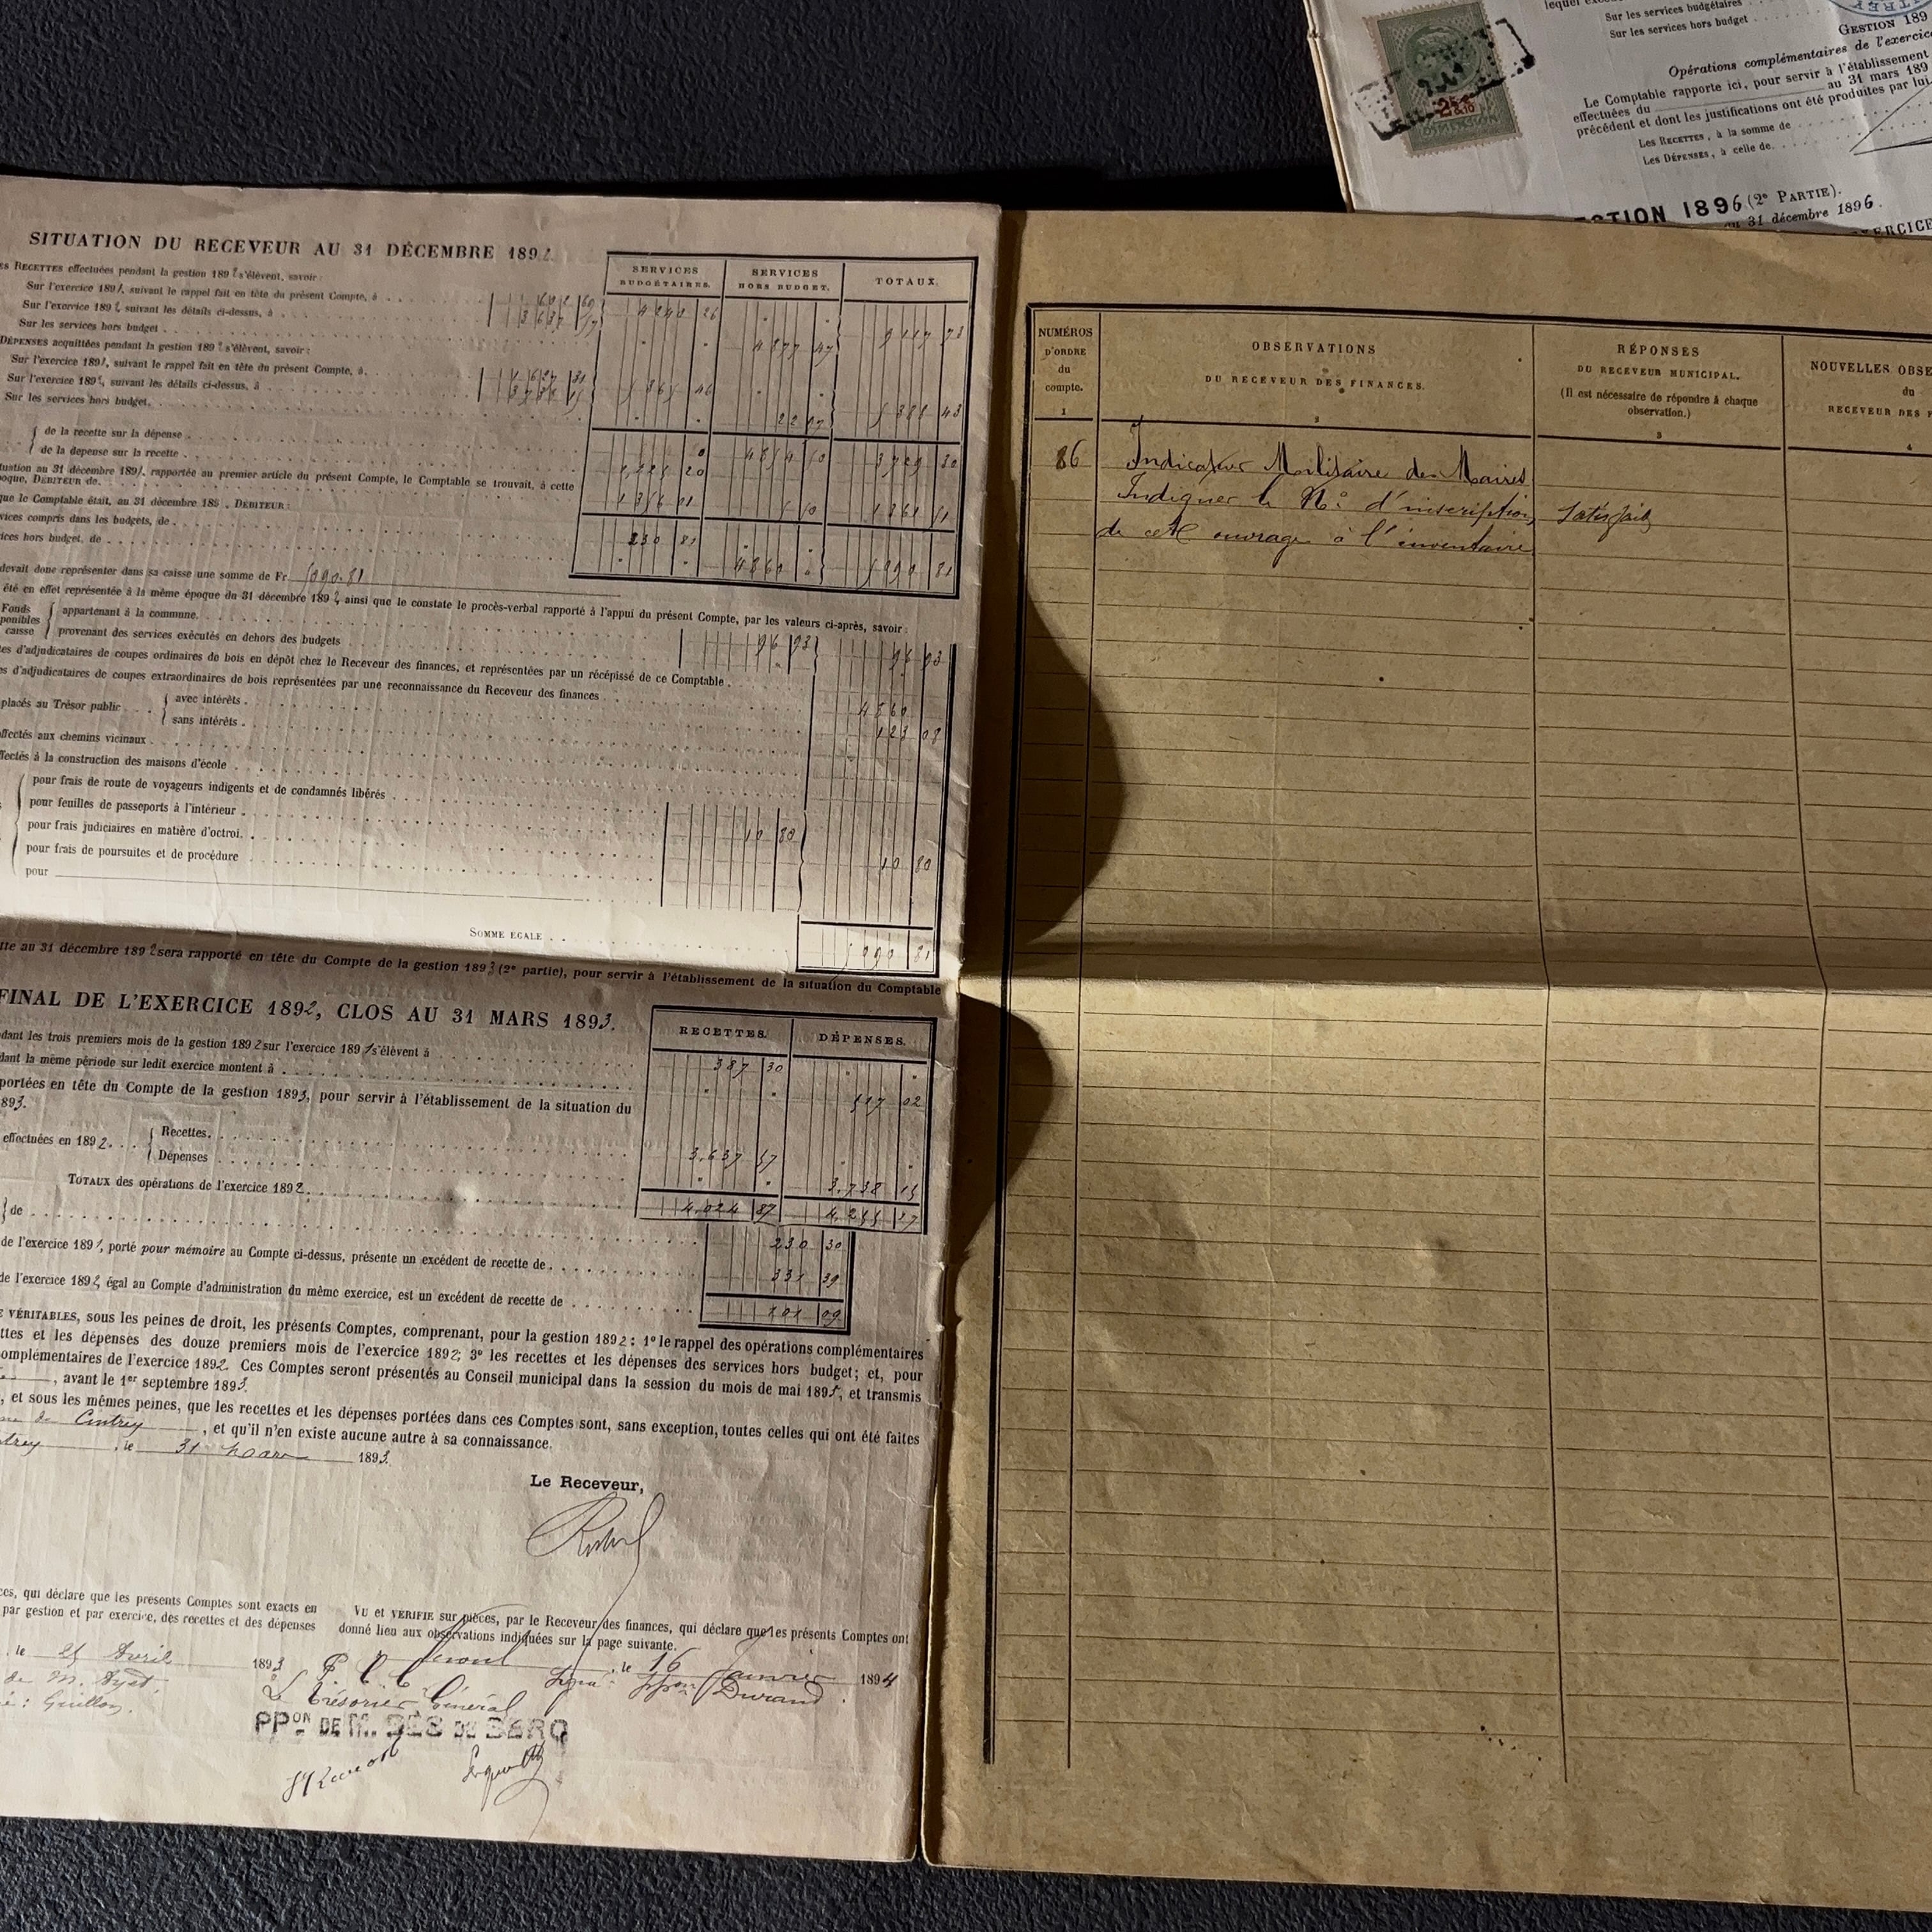 SITUATION DU RECEVEUR AU 31 DÉCEMBRE 1892
SERVICES BUDGÉTAIRES.
SERVICES HORS BUDGET.
TOTAUX.
es RECETTES effectuées pendant la gestion 1892 s'élèvent, savoir:
Sur l'exercice 1891, suivant le rappel fait en tête du présent Compte, à
Sur l'exercice 1892, suivant les détails ci-dessus, à
Sur les services hors budget
DÉPENSES acquittées pendant la gestion 1892 s'élèvent, savoir:
Sur l'exercice 1891, suivant le rappel fait en tête du présent Compte, à
Sur l'exercice 1892, suivant les détails ci-dessus, à
Sur les services hors budget.
de la recette sur la dépense
de la depense sur la recette
tuation au 31 décembre 1891, rapportée au premier article du présent Compte, le Comptable se trouvait, à cette
oque, DÉBITEUR de
que le Comptable était, au 31 décembre 189 , DÉBITEUR:
vices compris dans les budgets, de
ices hors budget, de
230 81
4860
devait donc représenter dans sa caisse une somme de Fr 5090.81
été en effet représentée à la même époque du 31 décembre 1892, ainsi que le constate le procès-verbal rapporté à l'appui du présent Compte, par les valeurs ci-après, savoir:
Fonds ponibles caisse
appartenant à la commune
provenant des services exécutés en dehors des budgets
96 93
96 93
es d'adjudicataires de coupes ordinaires de bois en dépôt chez le Receveur des finances, et représentées par un récépissé de ce Comptable
es d'adjudicataires de coupes extraordinaires de bois représentées par une reconnaissance du Receveur des finances
placés au Trésor public
avec intérêts
4860
sans intérêts
123 08
affectés aux chemins vicinaux
ffectés à la construction des maisons d'école
pour frais de route de voyageurs indigents et de condamnés libérés
pour feuilles de passeports à l'intérieur
pour frais judiciaires en matière d'octroi
10 80
pour frais de poursuites et de procédure
10 80
pour
SOMME EGALE
5090 81
tte au 31 décembre 1892 sera rapporté en tête du Compte de la gestion 1893 (2e partie), pour servir à l'établissement de la situation du Comptable
FINAL DE L'EXERCICE 1892, CLOS AU 31 MARS 1893.
RECETTES.
DÉPENSES.
dant les trois premiers mois de la gestion 1892 sur l'exercice 1891 s'élèvent à
387 30
dant la même période sur ledit exercice montent à
517 02
portées en tête du Compte de la gestion 1893, pour servir à l'établissement de la situation du
893.
effectuées en 1892
Recettes
3.637 57
Dépenses
3.738 15
TOTAUX des opérations de l'exercice 1892
4.024 87
4.255 17
de
230 30
de l'exercice 1891, porté pour mémoire au Compte ci-dessus, présente un excédent de recette de
331 39
de l'exercice 1892, égal au Compte d'administration du même exercice, est un excédent de recette de
101 09
E VÉRITABLES, sous les peines de droit, les présents Comptes, comprenant, pour la gestion 1892: 1o le rappel des opérations complémentaires
ttes et les dépenses des douze premiers mois de l'exercice 1892; 3o les recettes et les dépenses des services hors budget; et, pour
omplémentaires de l'exercice 1892. Ces Comptes seront présentés au Conseil municipal dans la session du mois de mai 1893, et transmis
, avant le 1er septembre 1893.
, et sous les mêmes peines, que les recettes et les dépenses portées dans ces Comptes sont, sans exception, toutes celles qui ont été faites
de Cintrey , et qu'il n'en existe aucune autre à sa connaissance.
trey , le 31 Mars 1893.
Le Receveur,
ces, qui déclare que les présents Comptes sont exacts en
par gestion et par exercice, des recettes et des dépenses
, le 25 Avril 1893
: Guillon.
VU et VERIFIE sur pièces, par le Receveur des finances, qui déclare que les présents Comptes ont
donné lieu aux observations indiquées sur la page suivante.
, le 16 Janvier 1894
Signé: Durand
Le Trésorier Général
PPON DE M.
NUMÉROS D'ORDRE du compte.
OBSERVATIONS
DU RECEVEUR DES FINANCES.
RÉPONSES
DU RECEVEUR MUNICIPAL.
(Il est nécessaire de répondre à chaque observation.)
NOUVELLES OBSE
du
RECEVEUR DES F
1
2
3
4
86
Indicateur Militaire des Maires
Indiquer le No d'inscription
de cet ouvrage à l'inventaire
Satisfait
lequel exc
Sur les services budgétaires
Sur les services hors budget
GESTION 189
Opérations complémentaires de l'exercic
Le Comptable rapporte ici, pour servir à l'établissement
effectuées du au 31 mars 189
précédent et dont les justifications ont été produites par lui
Les RECETTES, à la somme de
Les DÉPENSES, à celle de
STION 1896 (2e PARTIE).
au 31 décembre 1896.
ERCICE
DIMENSION